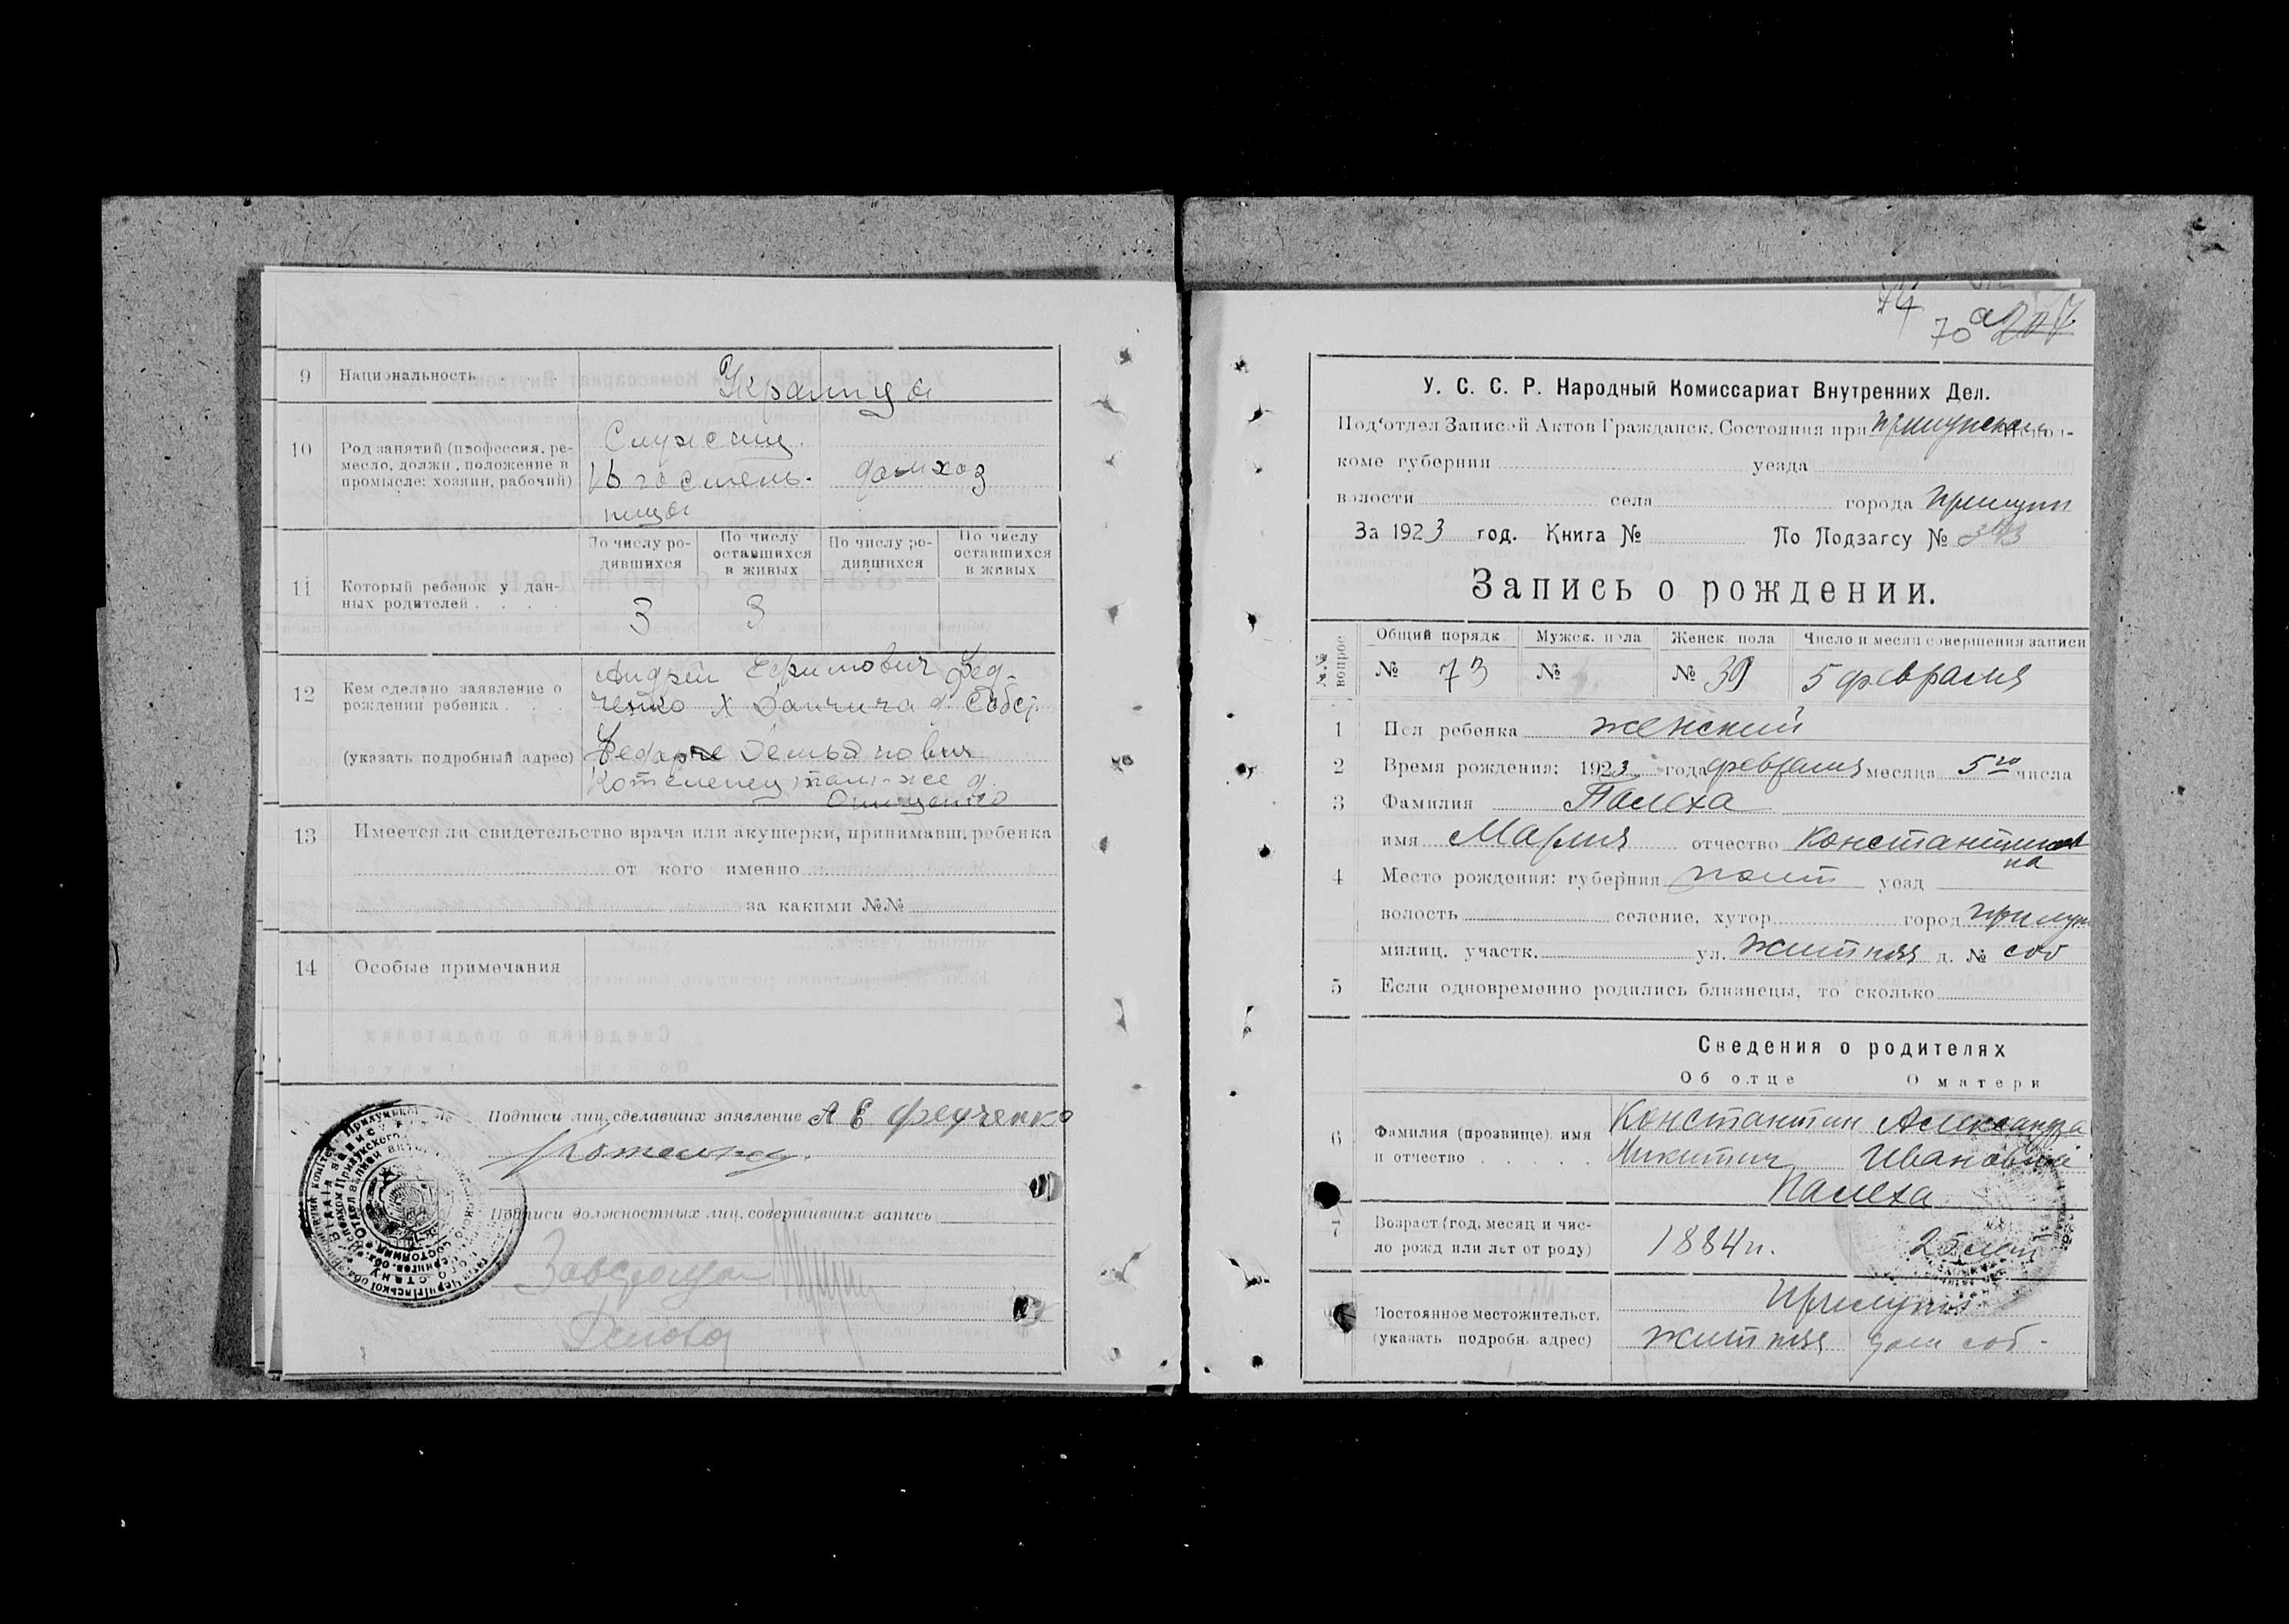 9 Национальность . . . Украинцы
10 Род занятий (профессия, ремесло, должн., положение в промысле: хозяин, рабочий)
Служащ.
В гостель-
ницы
домхоз
По числу родившихся
По числу оставшихся в живых
По числу родившихся
По числу оставшихся в живых
11 Который ребенок у дан-
ных родителей . . . . 3 3
12 Кем сделано заявление о
рождении ребенка . . .
(указать подробный адрес)
Андрей Ефимович Фед-
ченко д. Собст.
там-же д.
Онищенко
13 Имеется ли свидетельство врача или акушерки, принимавш. ребенка
от кого именно
за какими №№
14 Особые примечания
Подписи лиц, сделавших заявление А Е Федченко
Подписи должностных лиц, совершивших запись
74
70
У. С. С. Р. Народный Комиссариат Внутренних Дел.
Под‘отдел Записей Актов Гражданск. Состояния при Прилукском Испол-
коме губернии уезда
волости села города Прилуки
За 1923 год. Книга № По Подзагсу №
Запись о рождении.
№.№ вопрос
Общий порядк. Мужск. пола Женск. пола Число и месяц совершения записи
№ 73 № № 39 5 февраля
1 Пол ребенка женский
2 Время рождения: 1923 года февраля месяца 5го числа
3 Фамилия Палеха
имя Мария отчество Константинов
на
4 Место рождения: губерния Полт уезд
волость селение, хутор город Прилук
милиц. участк. ул. Житняя д. № соб
5 Если одновременно родились близнецы, то сколько
Сведения о родителях
Об отце О матери
6 Фамилия (прозвище), имя
и отчество . . . . .
Константин Александра
Никитич Ивановна
Палеха
7 Возраст (год, месяц и чис-
ло рожд или лет от роду) 1884 г. 25 лет
Постоянное местожительст.
(указать подробн. адрес)
Прилуки
Житняя дом соб.